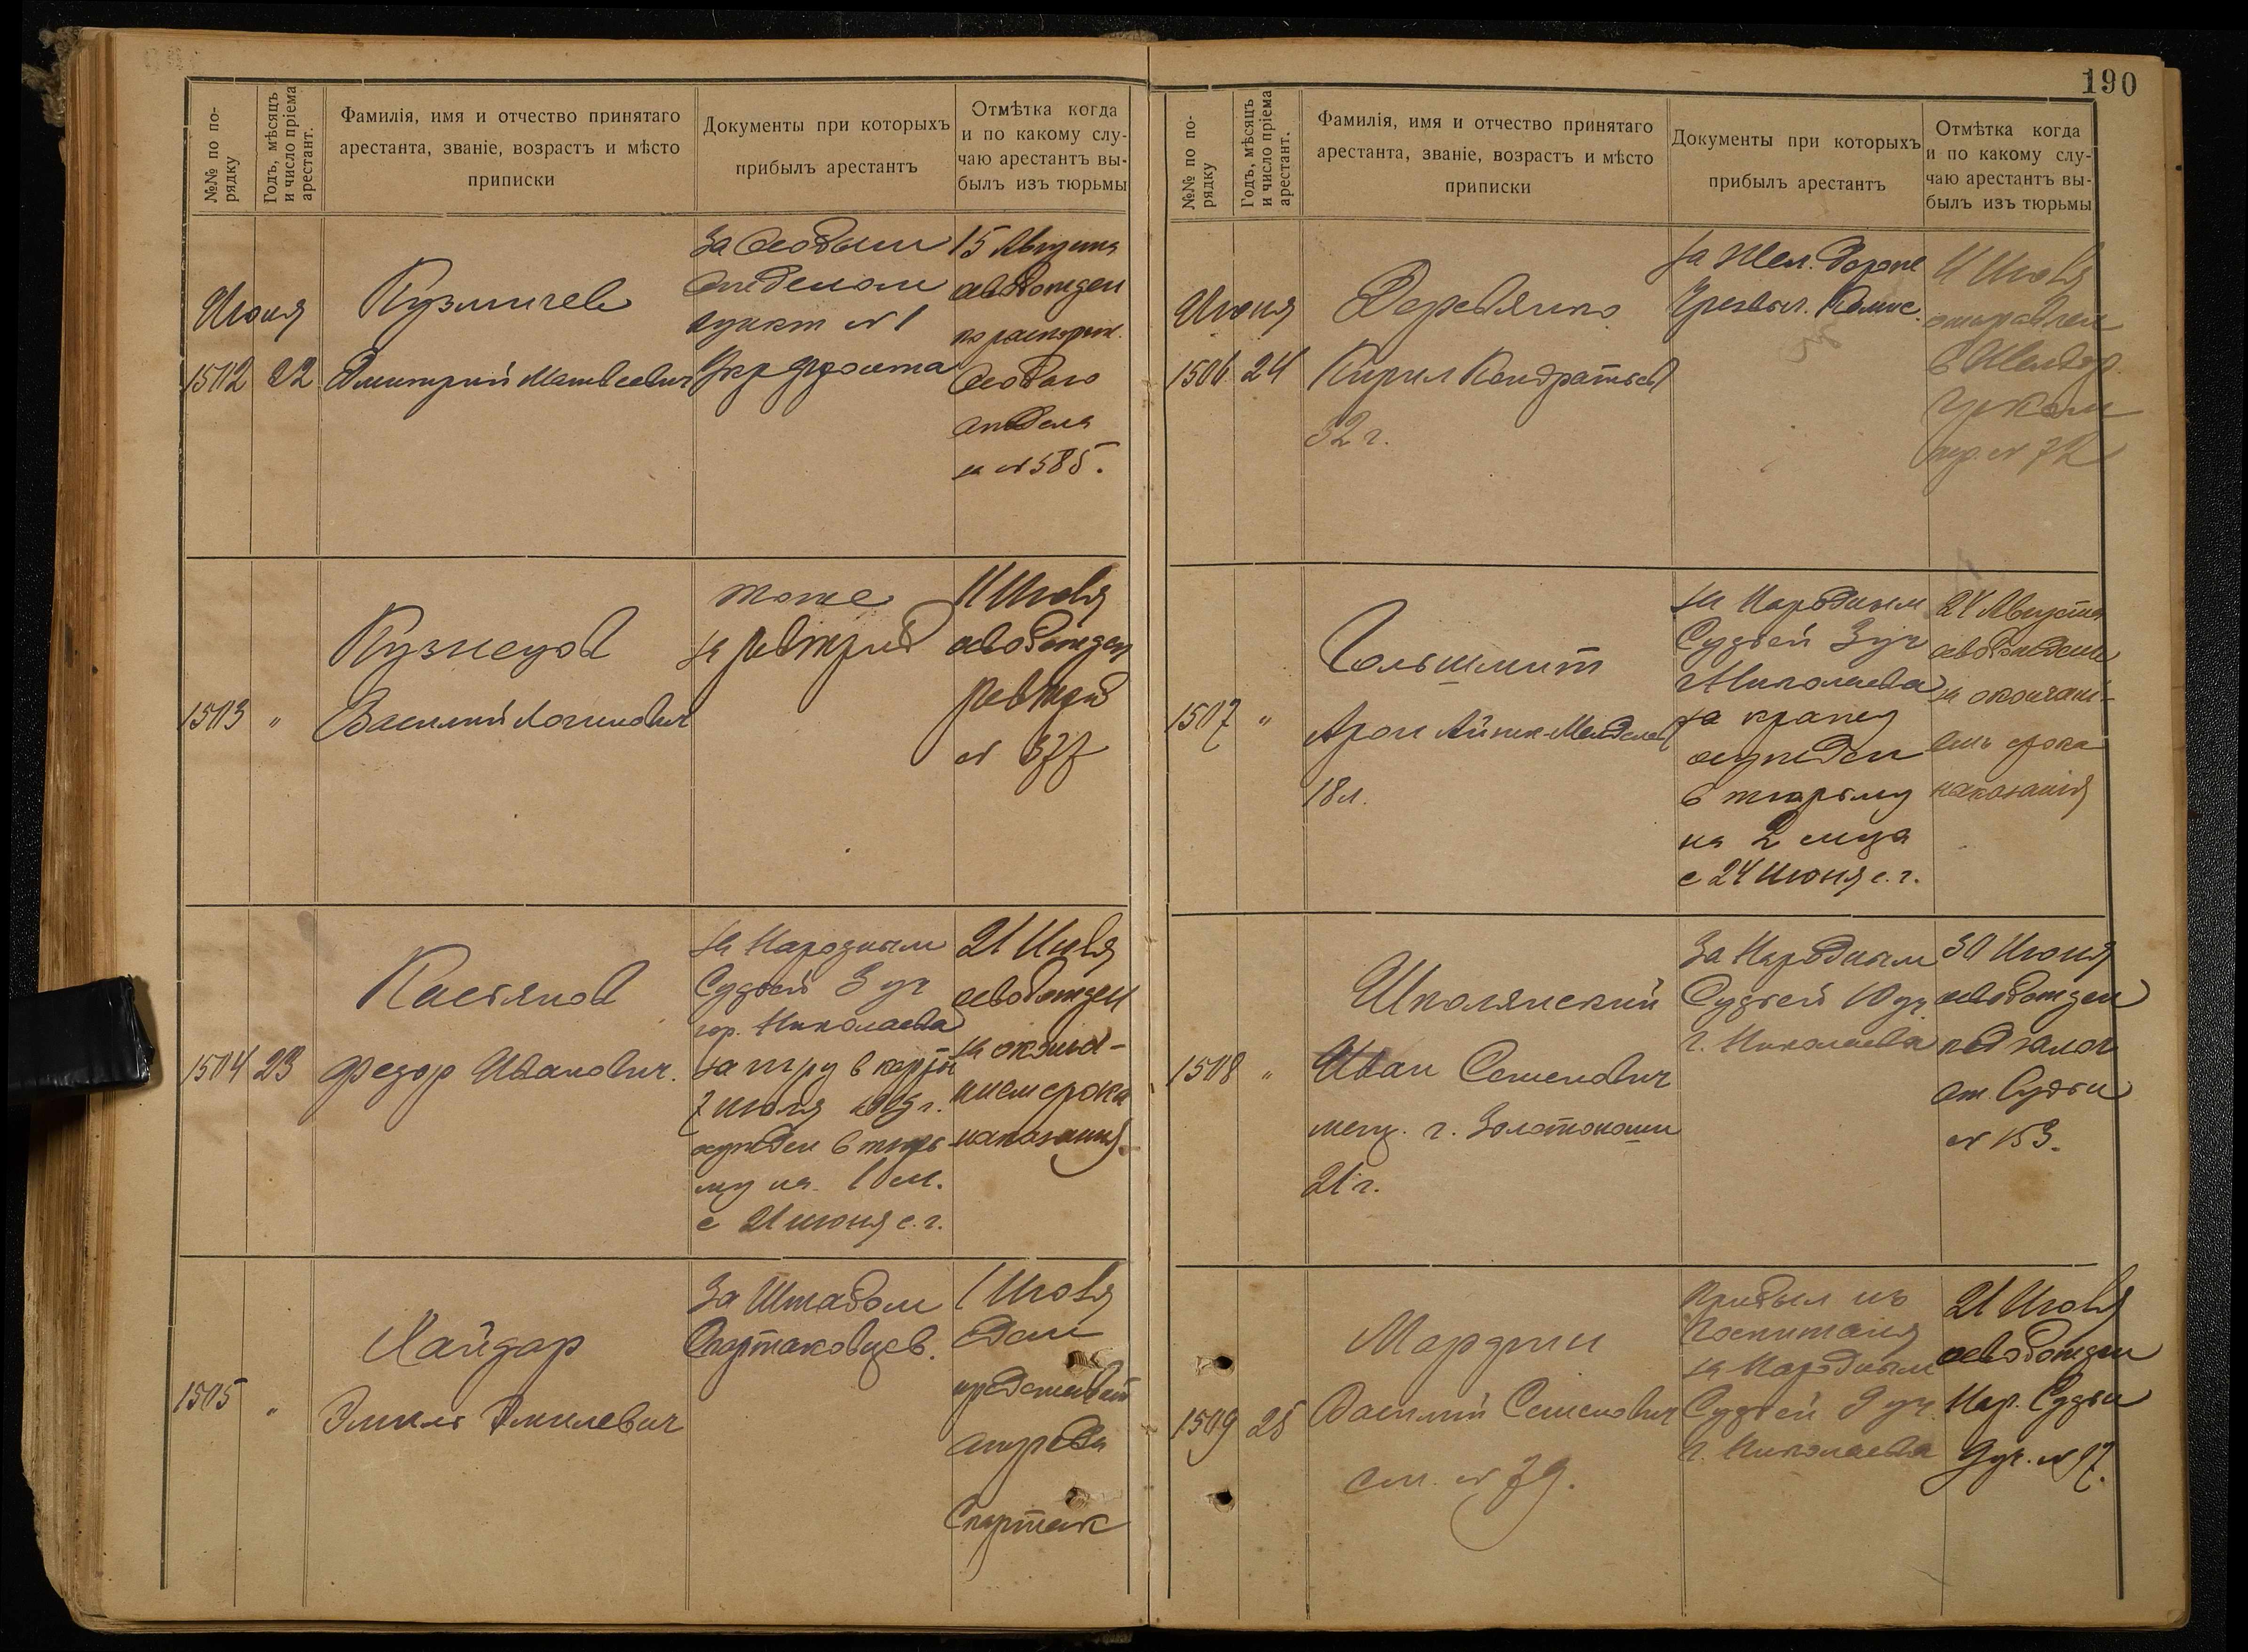 №№ по по-
рядку
Годъ, мѣсяцъ
и число пріема
арестант.
Фамилія, имя и отчество принятаго
арестанта, званіе, возрастъ и мѣсто
приписки
Документы при которыхъ
прибылъ арестантъ
Отмѣтка когда
и по какому слу-
чаю арестантъ вы-
былъ изъ тюрьмы
Июня
1502 22
Кузмичев
Дмитрий Матвеевич
За Особым
отделом
пункт № 1
Укр фронта
15 Августа
освобожден
по распоряж.
Особого
отдела
за № 585.
1503 "
Кузнецов
Василий Логинович
тоже
за ревтриб
11 Июля
освобожден
ревтриб
№ 377
1504 23
Касьянов
Федор Иванович.
за Народным
Судьей 3 уч
гор. Николаева
за игру в карты
7 июля
осужден в тюрь
му на 1 м.
с 21 июня с. г.
21 Июля
освобожден
за оконча-
нием срока
наказания.
1505 "
Хайдар
Эмиль Эмилевич
За Штабом
Спартаковцев.
1 Июля
дан
представит
отряда
Спартак
190
№№ по по-
рядку
Годъ, мѣсяцъ
и число пріема
арестант.
Фамилія, имя и отчество принятаго
арестанта, званіе, возрастъ и мѣсто
приписки
Документы при которыхъ
прибылъ арестантъ
Отмѣтка когда
и по какому слу-
чаю арестантъ вы-
былъ изъ тюрьмы
Июня
1506 24
Деревянко
Кирил Кондратьев
32 г.
за Жел. дорож
Чрезвыч. Комис.
11 Июля
отправлен
в Желдор.
Чеком
пр. № 72
1507 "
Гольшмит
Арон Айзик-Менделев
18 л.
за Народным
Судьей 3 уч
г Николаева
за кражу
осужден
в тюрьму
на 2 мца
с 24 Июня с. г.
24 Августа
освобожден
за окончані-
ем срока
наказанія
1508 "
Школянский
Иван Семенович
мещ. г. Золотоноши
21 г.
За Народным
Судьей 10 уч
г. Николаева
30 Июня
освобожден
под залог
от. Судьи
№ 153.
1509 25
Мардин
Василий Семенович
см. № 79.
Прибыл из
Госпиталя
за Народным
Судьей 9 уч.
г. Николаева
21 Июля
освобожден
Нар. Судьи
9 уч. № 97.